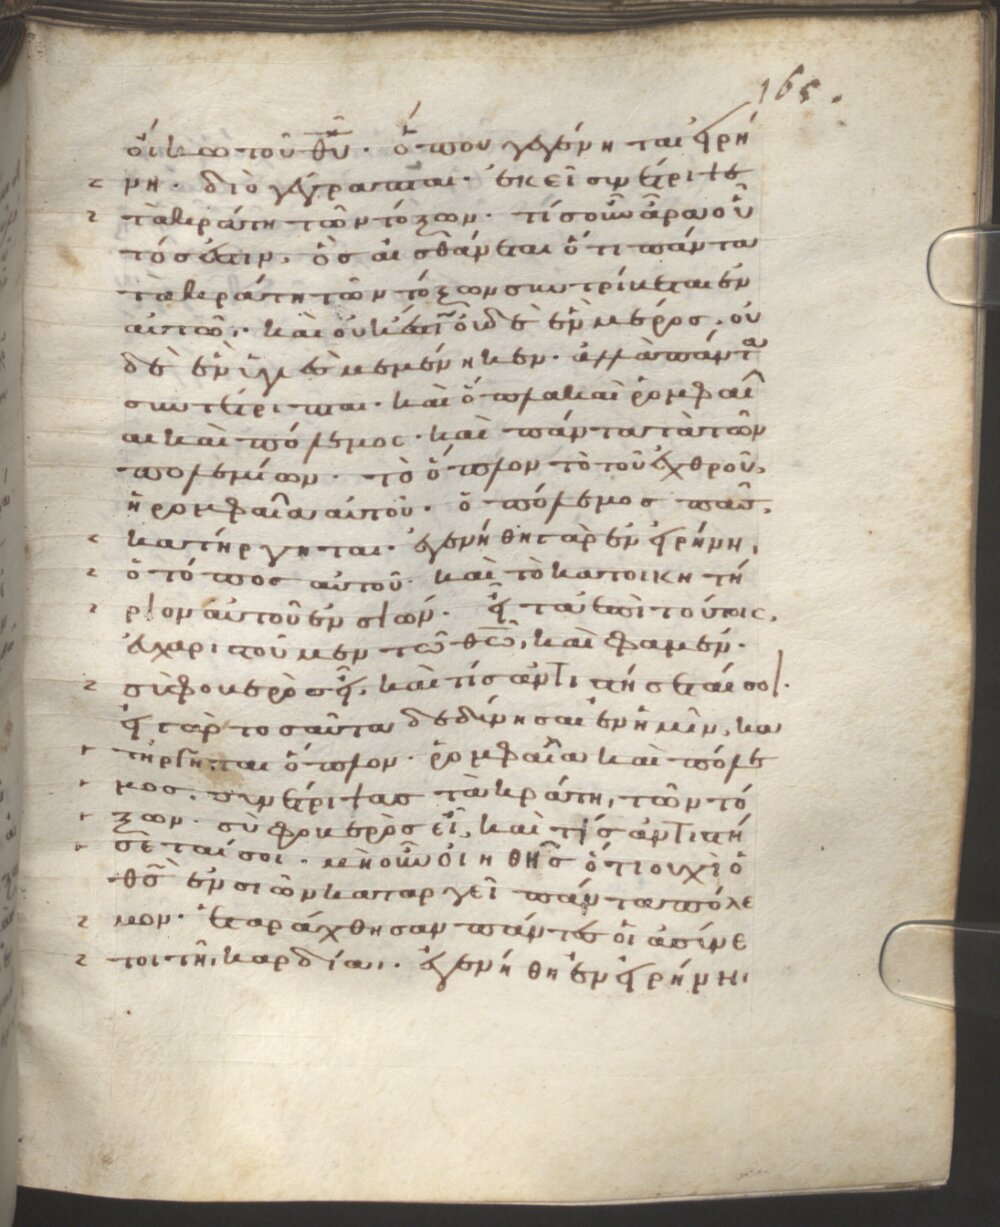 165.
οἴκω τοῦ θ͞υ· ὅπου γεγένηται εἰρή
νη· διὸ γέγραπται· ἐκεῖ συνέτριψε
τὰ κράτη τῶν τόξων· τίς οὖν ἄρα οὗ
τός ἐστιν, ὃς αἰσθάνεται ὅτι πάντα
τὰ κράτη τῶν τόξων συντρίβεται ἐν
αὐτῶ· καὶ οὐκέτι οὐδὲ ἓν μέρος, οὐ
δὲ ἓν μεμένηκεν· ἀλλὰ πάντα
συντέτριπται· καὶ ὅπλα καὶ ῥομφαῖ
αι καὶ πόλεμος· καὶ πάντα τὰ τῶν
πολεμίων· τὸ ὅπλον τὸ τοῦ ἐχθροῦ,
ἡ ῥομφαῖα αὐτοῦ· ὁ πόλεμος πᾶς,
κατήργηται· ἐγενήθη γὰρ ἐν εἰρήνη,
ὁ τόπος αὐτοῦ· καὶ τὸ κατοικητή
ριον αὐτοῦ ἐν σιών· εἶτα ἐπὶ τούτοις,
εὐχαριστοῦμεν τῶ θ͞ω, καὶ φαμέν·
σὺ φοβερὸς εἶ, καὶ τίς ἀντιστήσεταί σοι·
εἰ γὰρ τοσαῦτα δεδύνησαι ἐν ἡμῖν, κα
τήργηται ὅπλον· ῥομφαῖα καὶ πόλε
μος· συνέτριψας τὰ κράτη, τῶν τό
ξων· σὺ φοβερὸς εἶ, καὶ τίς ἀντιστή
σεταί σοι· μὴ οὖν οἰηθῆς ὅτι οὐχὶ ὁ
θ͞ς ἐν σιὼν καταργεῖ πάντα πόλε
μον· ἐταράχθησαν πάντες οἱ ἀσύνε
τοι τῆ καρδία· ἐγενήθη ἐν εἰρήνη,